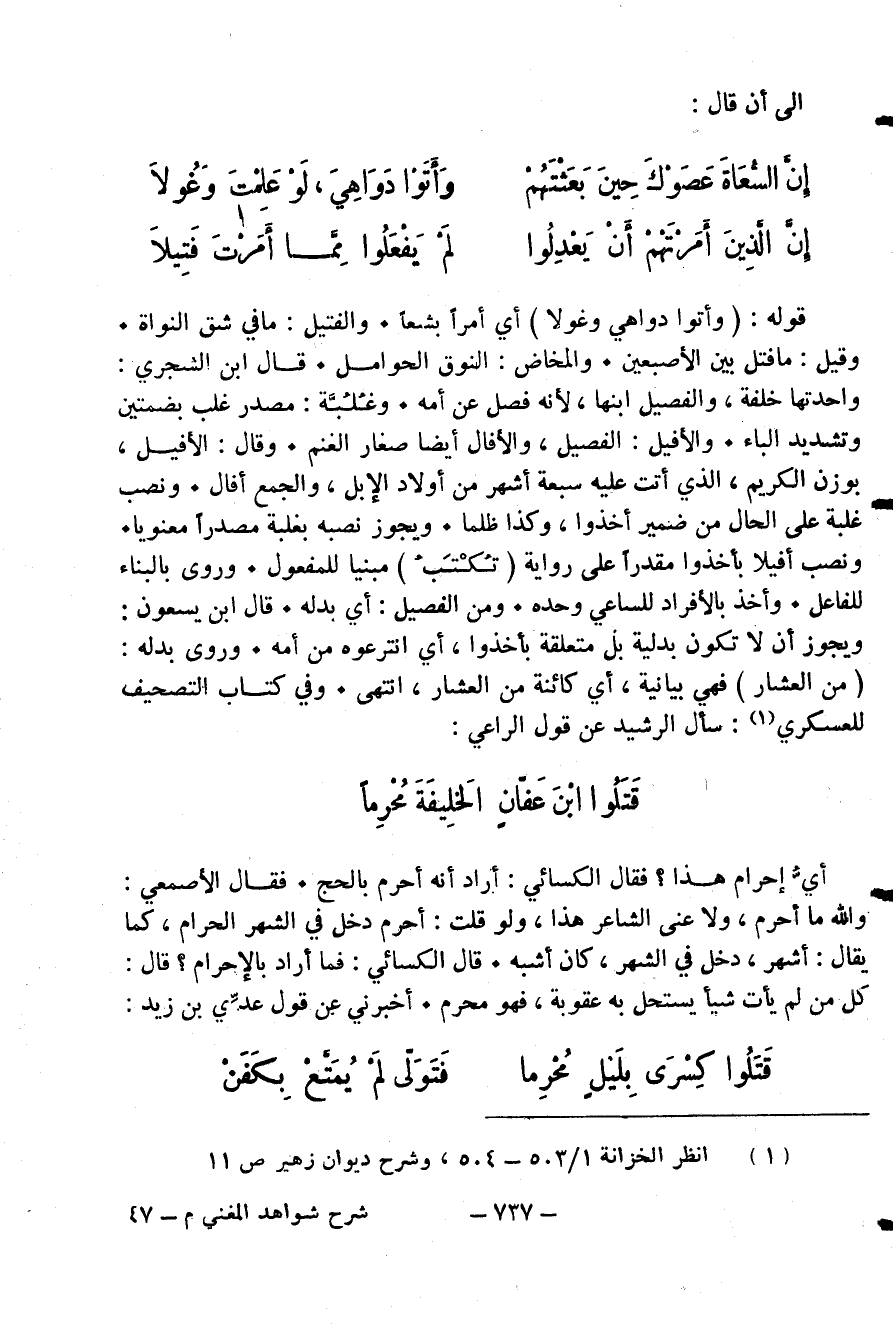 الى أن قال :
إِنَّ السُّعَاةَ عَصَوْكَ حِينَ بَعَثْتَهُمْ وَأَتَوْا دَوَاهِيَ ، لَوْ عَلِمْتَ وَغُولاَ
إِنَّ الَّذِينَ أَمَرْتَهُمْ أَنْ يَعْدِلُوا لَمْ يَفْعَلُوا مِمَّـا أَمَرْتَ فَتِيلاَ
قوله : ( وأتوا دواهي وغولا ) أي أمراً بشعاً • والفتيل : مافي شق النواة •
وقيل : مافتل بين الأصبعين • والمخاض : النوق الحوامـل • قـال ابن الشجري :
واحدتها خلفة ، والفصيل ابنها ، لأنه فصل عن أمه • وغُلُبَّة : مصدر غلب بضمتين
وتشديد الباء • والأفيل : الفصيل ، والأفال أيضا صغار الغنم • وقال : الأفيـل ،
بوزن الكريم ، الذي أتت عليه سبعة أشهر من أولاد الإبل ، والجمع أفال • ونصب
غلبة على الحال من ضمير أخذوا ، وكذا ظلما • ويجوز نصبه بغلبة مصدراً معنويا •
ونصب أفيلا بأخذوا مقدراً على رواية ( تُكْتَبُ ) مبنيا للمفعول • وروى بالبناء
للفاعل • وأخذ بالأفراد للساعي وحده • ومن الفصيل : أي بدله • قال ابن يسعون :
ويجوز أن لا تكون بدلية بل متعلقة بأخذوا ، أي انتزعوه من أمه • وروى بدله :
( من العشار ) فهي بيانية ، أي كائنة من العشار ، انتهى • وفي كتـاب التصحيف
للعسكري(١) : سأل الرشيد عن قول الراعي :
قَتَلُوا ابْنَ عَفّانٍ الخَلِيفَةَ مُحْرِماً
أيُّ إحرام هـذا ؟ فقال الكسائي : أراد أنه أحرم بالحج • فقـال الأصمعي :
والله ما أحرم ، ولا عنى الشاعر هذا ، ولو قلت : أحرم دخل في الشهر الحرام ، كما
يقال : أشهر ، دخل في الشهر ، كان أشبه • قال الكسائي : فما أراد بالإحرام ؟ قال :
كل من لم يأت شيأ يستحل به عقوبة ، فهو محرم • أخبرني عن قول عديّ بن زيد :
قَتَلُوا كِسْرَى بِلَيْلٍ مُحْرِما فَتَوَلّى لَمْ يُمَتَّعْ بِكَفَنْ
( ١ ) انظر الخزانة ٥٠٣/١ – ٥٠٤ ، وشرح ديوان زهير ص ١١
– ٧٣٧ – شرح شواهد المغني م – ٤٧